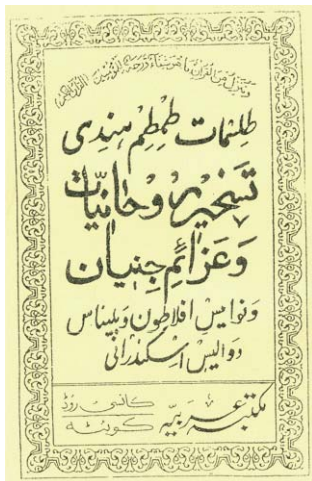 وننزل من القرآن ما هو شفاء ورحمة للمؤمنين
طلسمات طمطم هندی
تسخیر روحانیات
وعزائم جنیان
ونوامیس افلاطون وبلیناس
دوالیس اسکندرانی
مکتبه عربیه
کانسی روڈ
کوئٹه